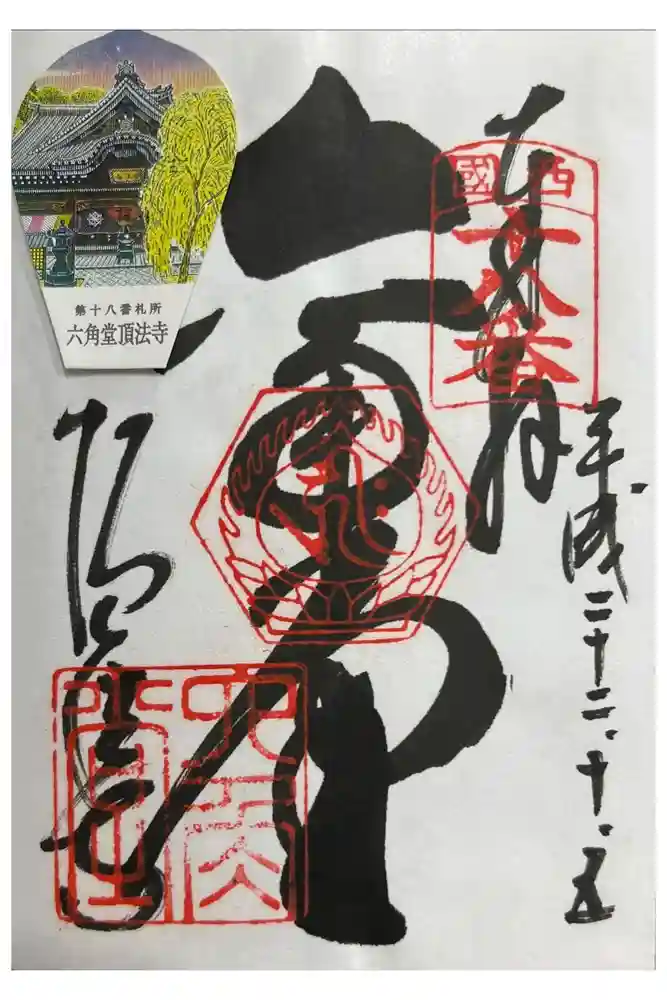 第十八番札所
六角堂頂法寺
奉拝
西國
十八番
平成二十二、十、五
六角堂
頂法寺